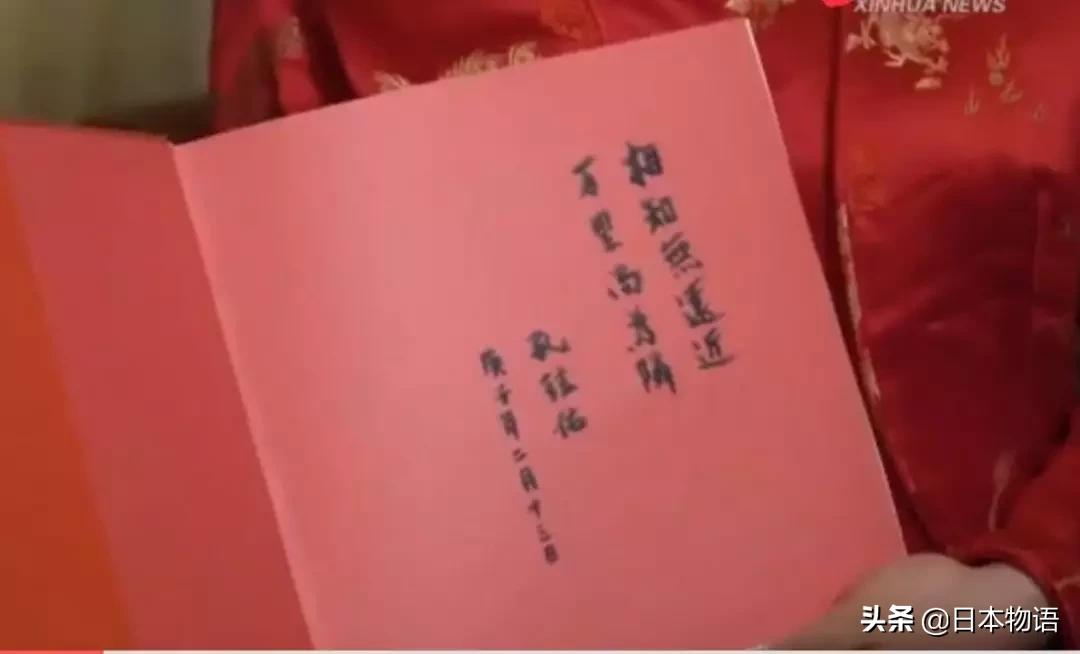 XINHUA NEWS
相知无远近
万里尚为隣
孔铉佑
庚子年二月十三日
头条 @日本物语